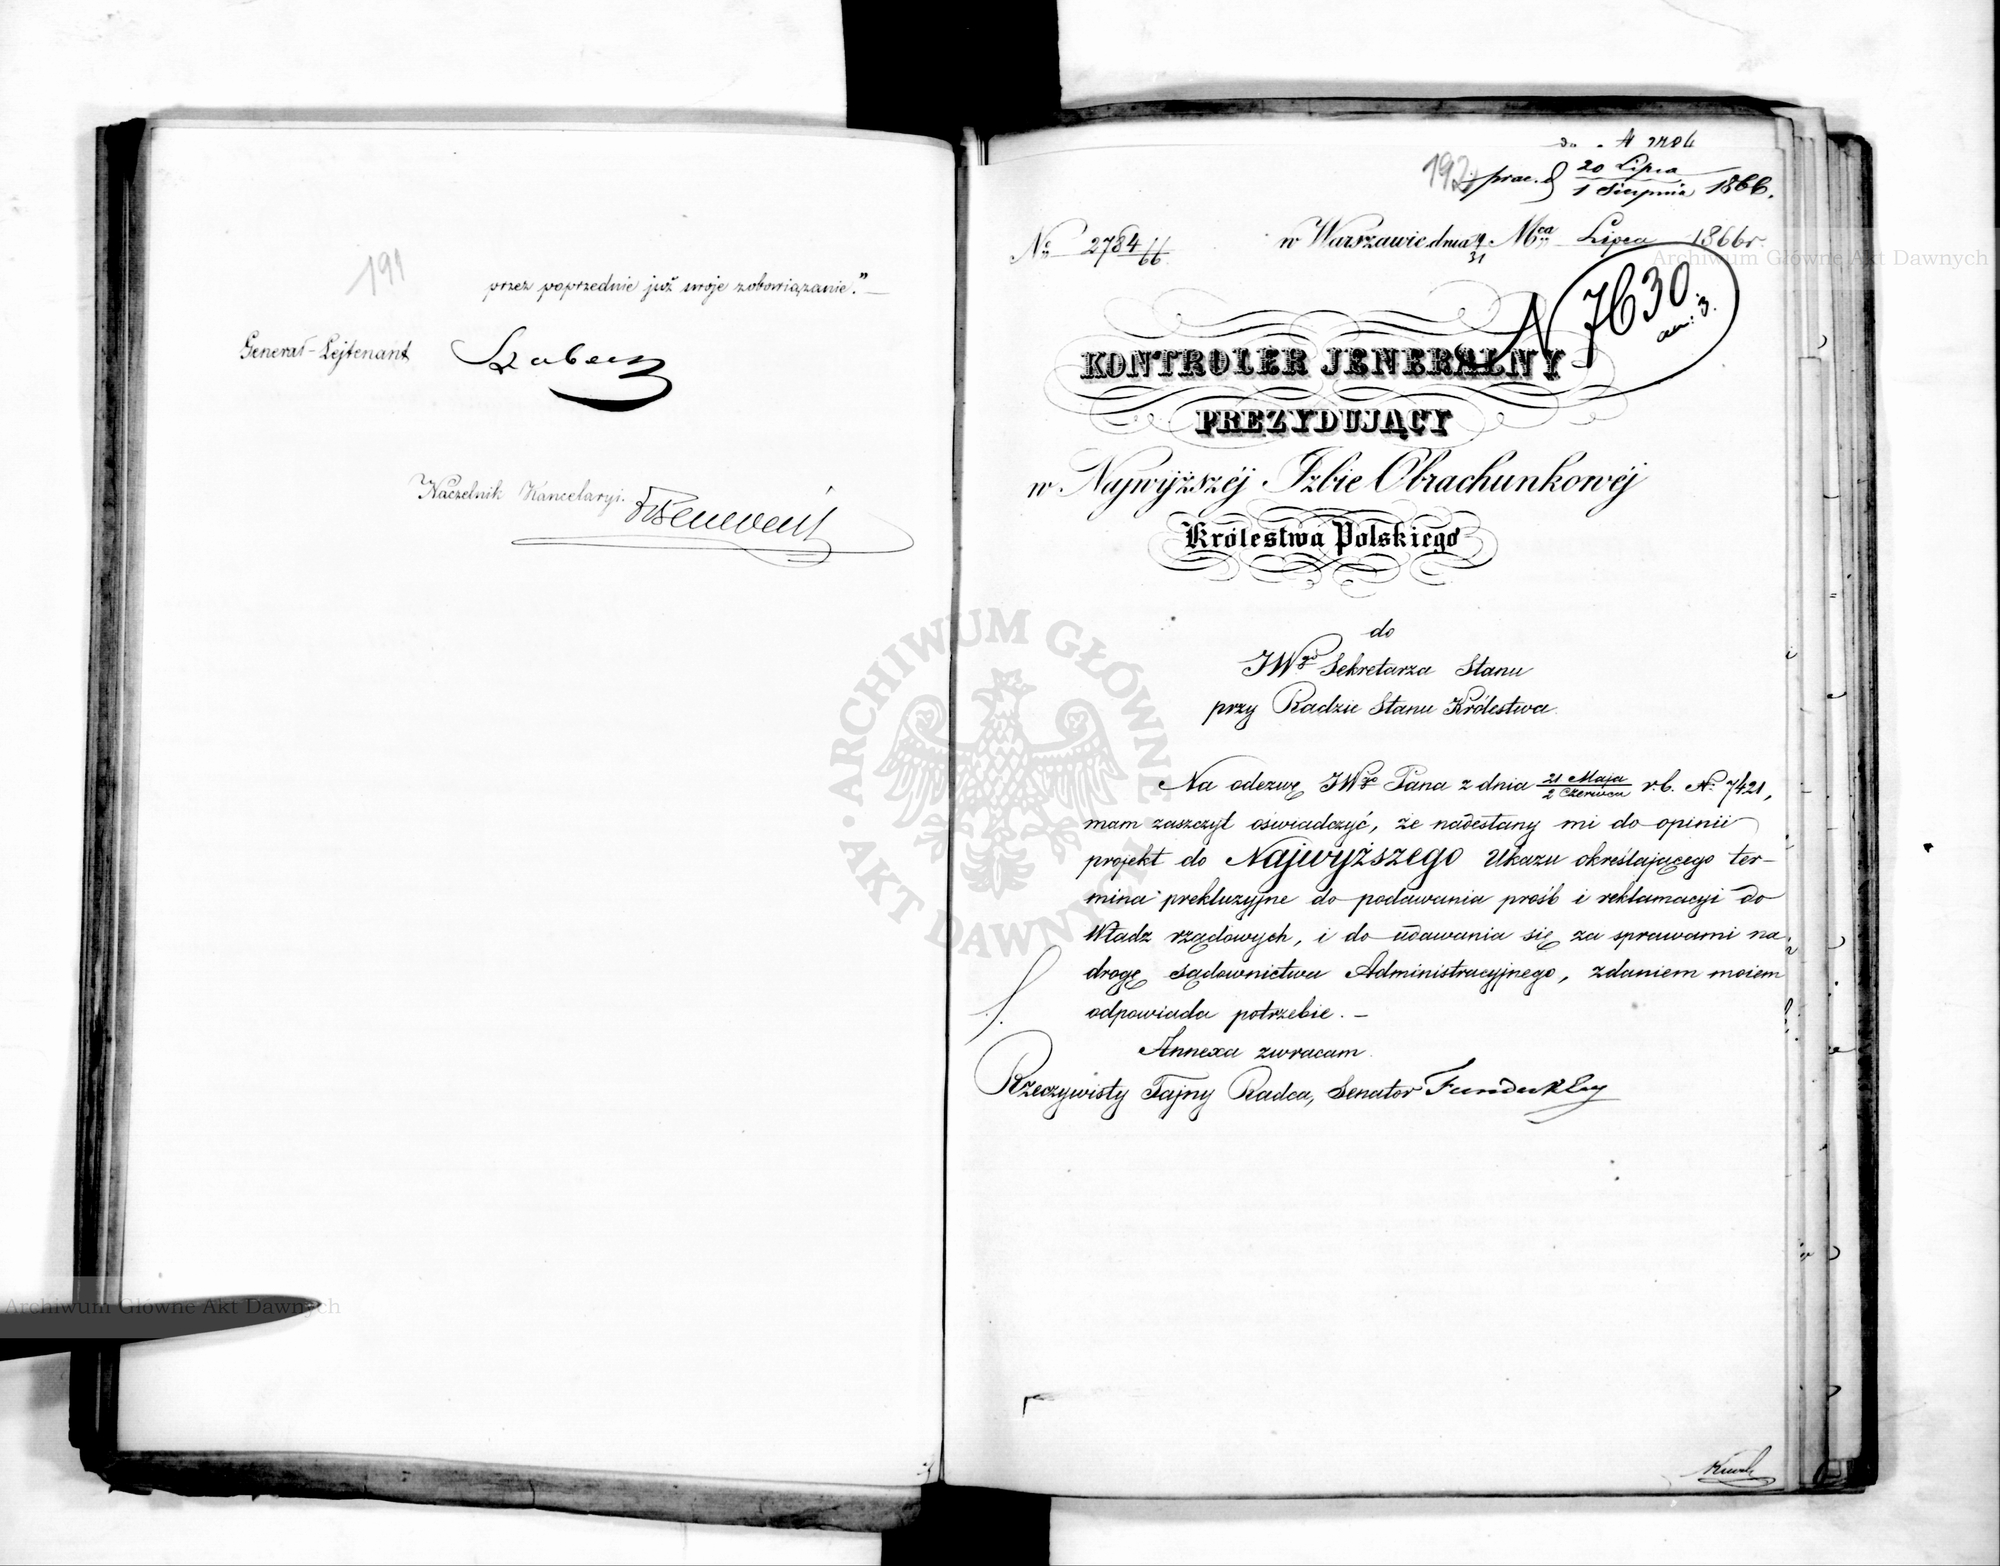 191
przez poprzednie już swoje zobowiązanie." —
Generał-Lejtenant
Naczelnik Kancelaryi.
192
20 Lipca
1 Sierpnia 1866.
No 2784/66
w Warszawie dnia 19/31 Mca Lipca 1866 r.
N 7630.
KONTROLER JENERALNY
PREZYDUJĄCY
w Najwyższéj Izbie Obrachunkowéj
Królestwa Polskiego
do
JWgo Sekretarza Stanu
przy Radzie Stanu Królestwa.
Na odezwę JWgo Pana z dnia 21 Maja / 2 Czerwca r.b. No 7421,
mam zaszczyt oświadczyć, że nadesłany mi do opinii
projekt do Najwyższego Ukazu określającego ter-
mina prekluzyjne do podawania prośb i reklamacyi do
Władz rządowych, i do udawania się za sprawami na
drogę sądownictwa Administracyjnego, zdaniem moiem
odpowiada potrzebie. —
Annexa zwracam.
Rzeczywisty Tajny Radca, Senator Fundukley
ARCHIWUM GŁÓWNE AKT DAWNYCH
Archiwum Główne Akt Dawnych
Archiwum Główne Akt Dawnych